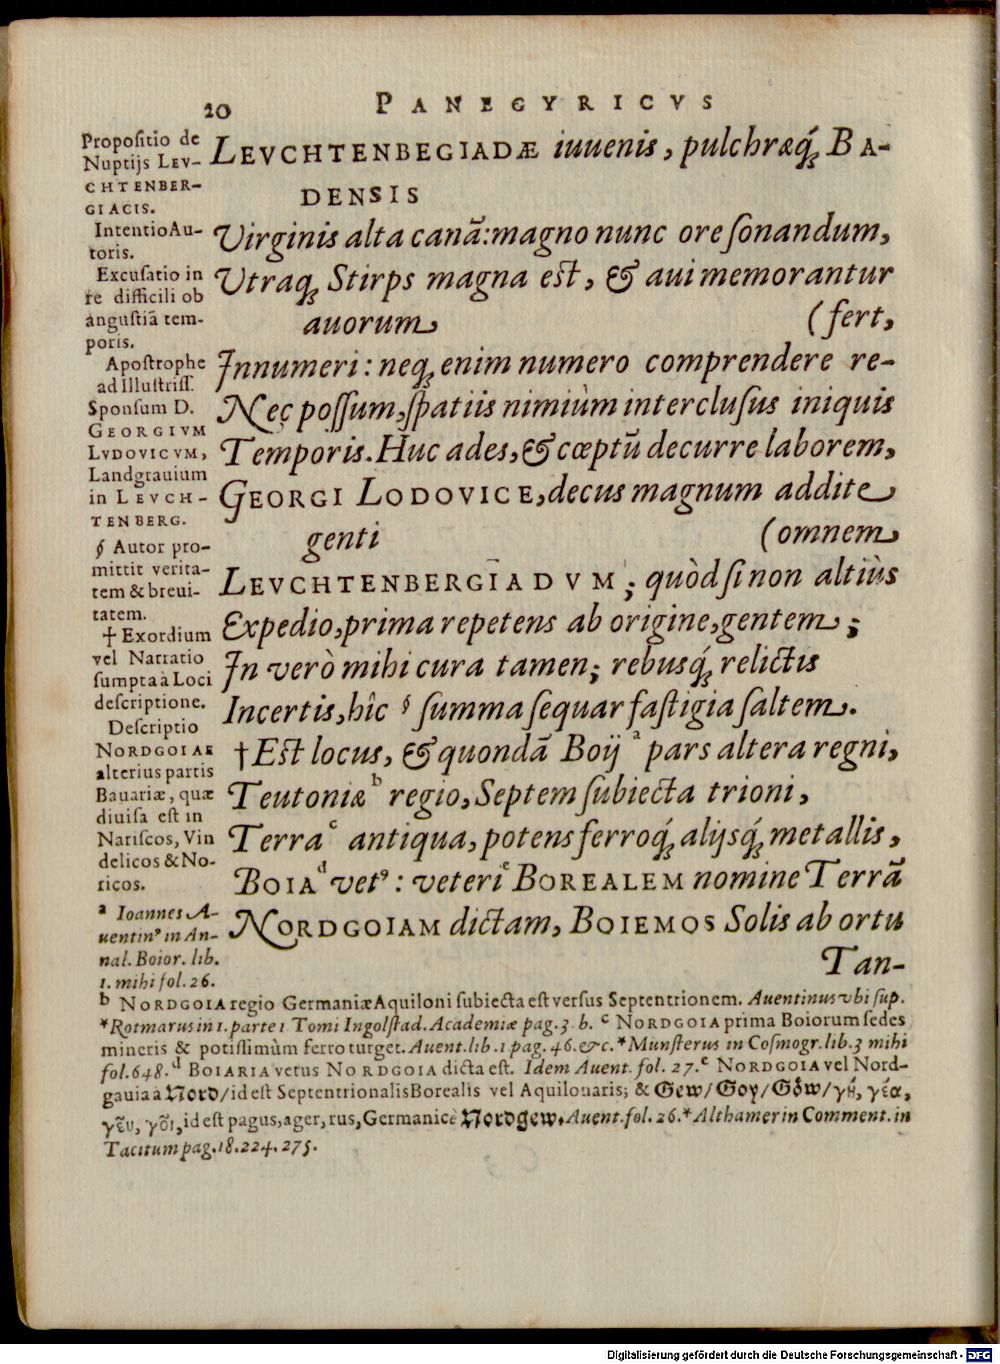 20 PANEGYRICVS
LEVCHTENBEGIADÆ iuuenis, pulchræq́ꝫ BA-
DENSIS
Virginis alta canã: magno nunc ore ſonandum,
Vtraqꝫ Stirps magna est, & aui memorantur
auorum (fert,
Innumeri: neqꝫ enim numero comprendere re-
Nec poſſum, ſpatiis nimiùm intercluſus iniquis
Temporis. Huc ades, & cœptũ decurre laborem,
GEORGI LODOVICE, decus magnum addite
genti (omnem
LEVCHTENBERGIADVM; quòd ſi non altiùs
Expedio, prima repetens ab origine, gentem;
In verò mihi cura tamen; rebusq́ꝫ relictis
Incertis, hîc § ſumma ſequar faſtigia ſaltem.
† Est locus, & quondã Boij a pars altera regni,
Teutoniæ b regio, Septem ſubiecta trioni,
Terra c antiqua, potens ferroq́ꝫ alijsq́ꝫ metallis,
BOIA d vetꝰ: veteri e BOREALEM nomine Terrã
NORDGOIAM dictam, BOIEMOS Solis ab ortu
Tan-
Propoſitio de
Nuptijs LEV-
CHTENBER-
GIACIS.
Intentio Au-
toris.
Excuſatio in
re difficili ob
anguſtiã tem-
poris.
Apoſtrophe
ad Illuſtriſſ.
Sponſum D.
GEORGIVM
LVDOVICVM,
Landgrauium
in LEVCH-
TENBERG.
§ Autor pro-
mittit verita-
tem & breui-
tatem.
† Exordium
vel Narratio
ſumpta à Loci
deſcriptione.
Deſcriptio
NORDGOIAE
alterius partis
Bauariæ, quæ
diuiſa est in
Nariſcos, Vin
delicos & No-
ricos.
a Ioannes A-
uentinꝰ in An-
nal. Boior. lib.
1. mihi fol. 26.
b NORDGOIA regio Germaniæ Aquiloni ſubiecta est verſus Septentrionem. Auentinus vbi ſup.
*Rotmarus in 1. parte 1 Tomi Ingolſtad. Academiæ pag. 3. b. c NORDGOIA prima Boiorum ſedes
mineris & potiſſimùm ferro turget. Auent. lib. 1 pag. 46. &c. *Munſterus in Coſmogr. lib. 3 mihi
fol. 648. d BOIARIA vetus NORDGOIA dicta est. Idem Auent. fol. 27. e NORDGOIA vel Nord-
gauia à Nord/ id est Septentrionalis Borealis vel Aquilonaris; & Gew/ Goy/ Göw/ γῆ, γέα,
γεῦ, γοῖ, id est pagus, ager, rus, Germanicè Nordgew. Auent. fol. 26. *Althamer in Comment. in
Tacitum pag. 18. 224. 275.
Digitalisierung gefördert durch die Deutsche Forschungsgemeinschaft - DFG